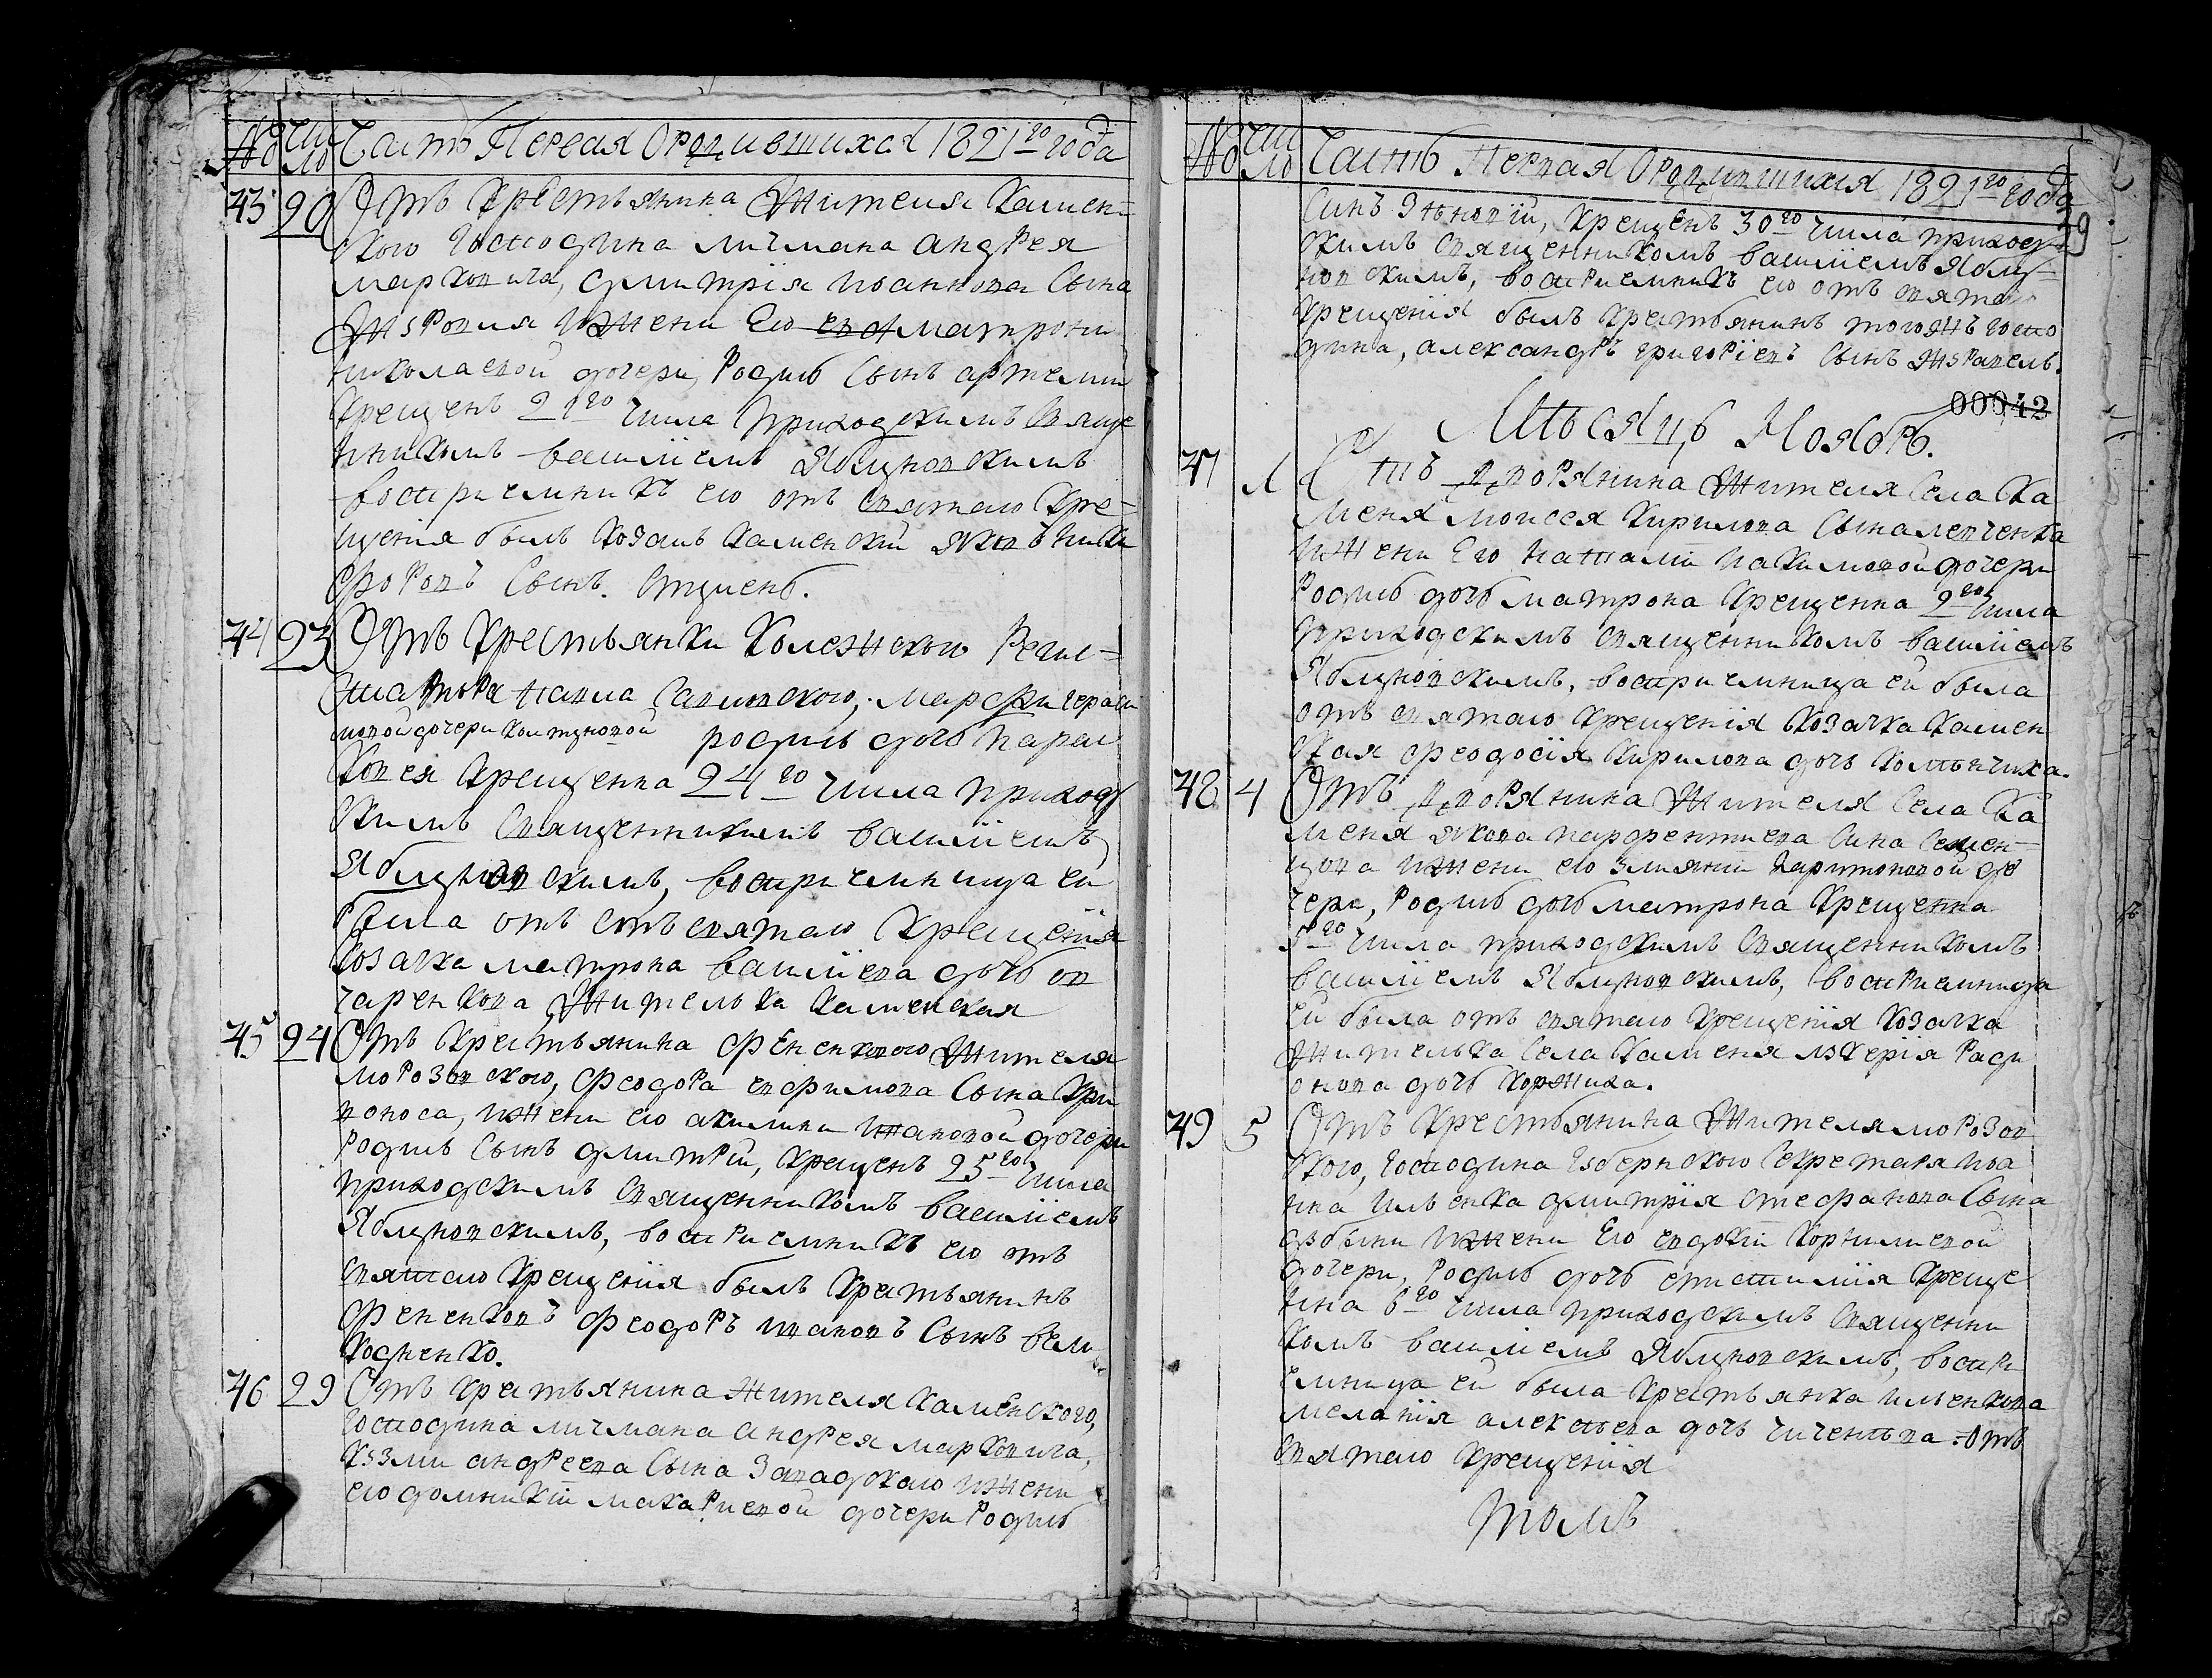 № Чи сло Часть Первая О родившихся 1821го года
43 20 Отъ Крестьянина Жителя Камен-
ского Господина мичмана андрея
марковича, дмитрія иваннова Сына
ижени Его матрони
николаевой дочери, Родись Сынъ артемій
Крещенъ 21го числа Приходскимъ Свяще
нникомъ василіемъ Яблуновскимъ
восприемникъ его отъ святаго Кре-
щенія былъ Козакъ Каменскій яковъ ники
фоРовъ Сынъ.
44 23 Отъ Крестьянки Колежского Регис-
тратоРа павла марфи гераси
мовой дочери родись дочь параc
Ковея Крещенна 24го числа приход
скимъ Священникомъ василіемъ
Яблуновскимъ, восприемница ей
была отъ святаго Крещенія
Козачка матрона василіева дочь ов
чаренкова Жителька Каменская
45 24 Отъ Крестьянина фененкового Жителя
моРозовского, феодоРа ефимова Сына Кри
воноса, ижени его акилини дочери
Родись Сынъ дмитРій, Крещенъ 25го числа
приходскимъ Священникомъ василіемъ
Яблуновскимъ, воспРиемникъ его отъ
святаго Крещенія былъ Крестьянинъ
фененковъ феодоРъ Сынъ вели
кодненко.
46 29 Отъ Крестьянина Жителя Каменского,
Господина мичмана андРея марковича,
кузми андРеева Сына Западского ижени
его домникіи макаРиевой дочери Родись
№ Чи сло Часть Первая О родившихся 1821го года
39
Синъ Зѣновій, Крещенъ 30го числа приход-
скимъ Священникомъ василіемъ Яблу-
новскимъ, воспРиемникъ его отъ святаго
Крещенія былъ Крестьянинъ тогожъ Госпо
дина, александРъ григоРіевъ Сынъ
00042
Мѣсяцъ Ноябрь.
47 1 Отъ двоРянина Жителя Села Ка
меня моисея Кирилова Сына левченка
ижени Его наталіи иакимовой дочери
Родись дочь матрона Крещенна 2го числа
приходскимъ священникомъ василіемъ
Яблуновскимъ, восприемница ей была
отъ святаго Крещенія Козачка Камен
ская феодосія Кирилова дочь
48 4 Отъ двоРянина Жителя Села Ка
меня якова парфентиева Сина Семен-
цова ижени его Харитоновой до
чери, Родись дочь матрона Крещенна
5го числа приходскимъ Священникомъ
василіемъ Яблуновскимъ, воспРиемница
ей была отъ святаго Крещенія Козачка
Жителька Села Каменя лукерія Роди
онова дочь Коржиха.
49 5 Отъ Крестьянина Жителя моРозов
ского, Господина Губернского СекретаРя ива
на ильенка дмитрія стефанова Сына
дзюбыни ижени Его евдокіи Корнилиевой
дочери, Родись дочь епистимія Креще
нна 6го числа приходскимъ Священни
комъ василіемъ Яблуновскимъ, воспРи
емница ей была Крестьянка ильенкова
меланія алексѣева дочь отъ
святаго Крещенія